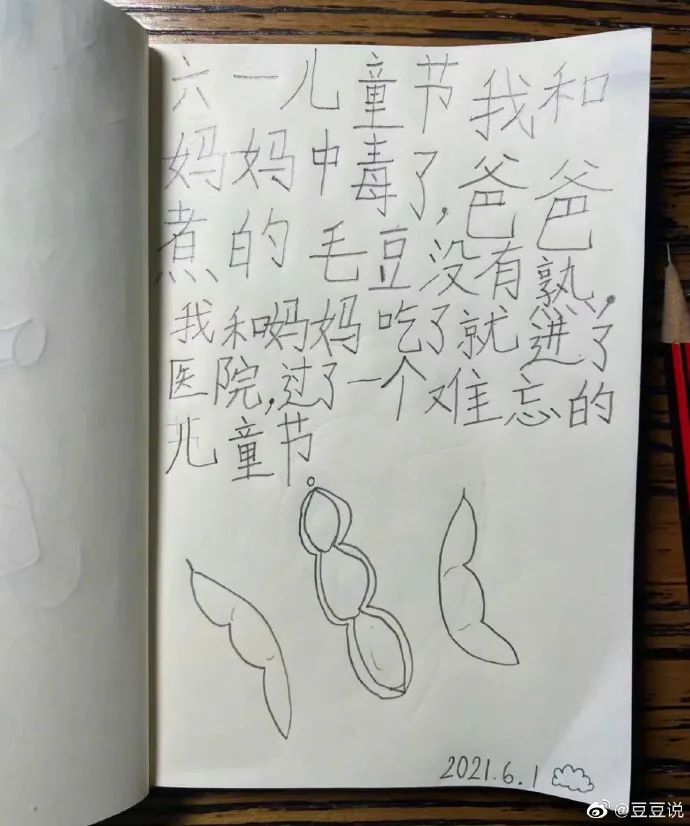 六一儿童节我和
妈妈中毒了,爸爸
煮的毛豆没有熟,
我和妈妈吃了就进了
医院,过了一个难忘的
儿童节
2021.6.1
@豆豆说